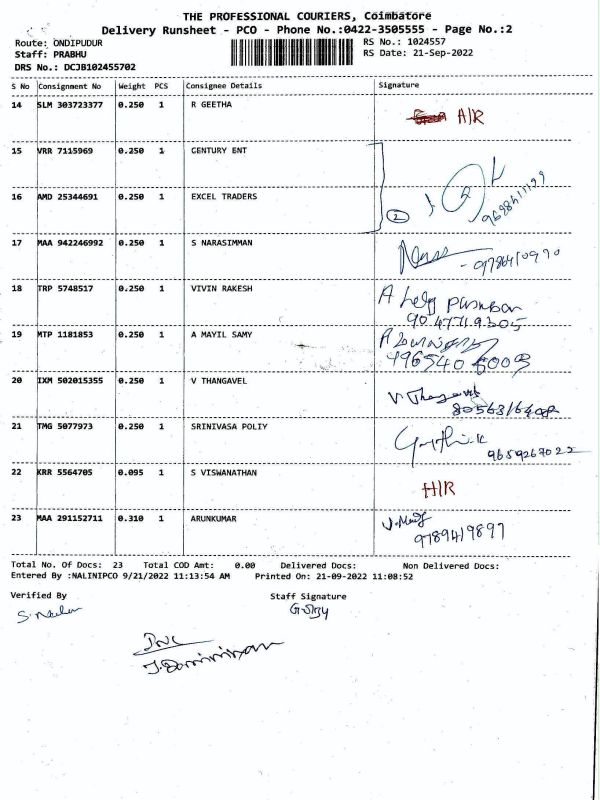 THE PROFESSIONAL COURIERS, Coimbatore
Delivery Runsheet - PCO - Phone No.:0422-3505555 - Page No.:2
Route: ONDIPUDUR
RS No.: 1024557
Staff: PRABHU
RS Date: 21-Sep-2022
DRS No.: DCJB102455702
S No Consignment No Weight PCS Consignee Details Signature
14 SLM 303723377 0.250 1 R GEETHA A/R
15 VRR 7115969 0.250 1 CENTURY ENT
16 AMD 25344691 0.250 1 EXCEL TRADERS 2
17 MAA 942246992 0.250 1 S NARASIMMAN
18 TRP 5748517 0.250 1 VIVIN RAKESH
9047719305
19 MTP 1181853 0.250 1 A MAYIL SAMY
20 IXM 502015355 0.250 1 V THANGAVEL V. Thangavel
21 TMG 5077973 0.250 1 SRINIVASA POLIY
9659267022
22 KRR 5564705 0.095 1 S VISWANATHAN H/R
23 MAA 291152711 0.310 1 ARUNKUMAR
9789419897
Total No. Of Docs: 23 Total COD Amt: 0.00 Delivered Docs: Non Delivered Docs:
Entered By :NALINIPCO 9/21/2022 11:13:54 AM Printed On: 21-09-2022 11:08:52
Verified By Staff Signature